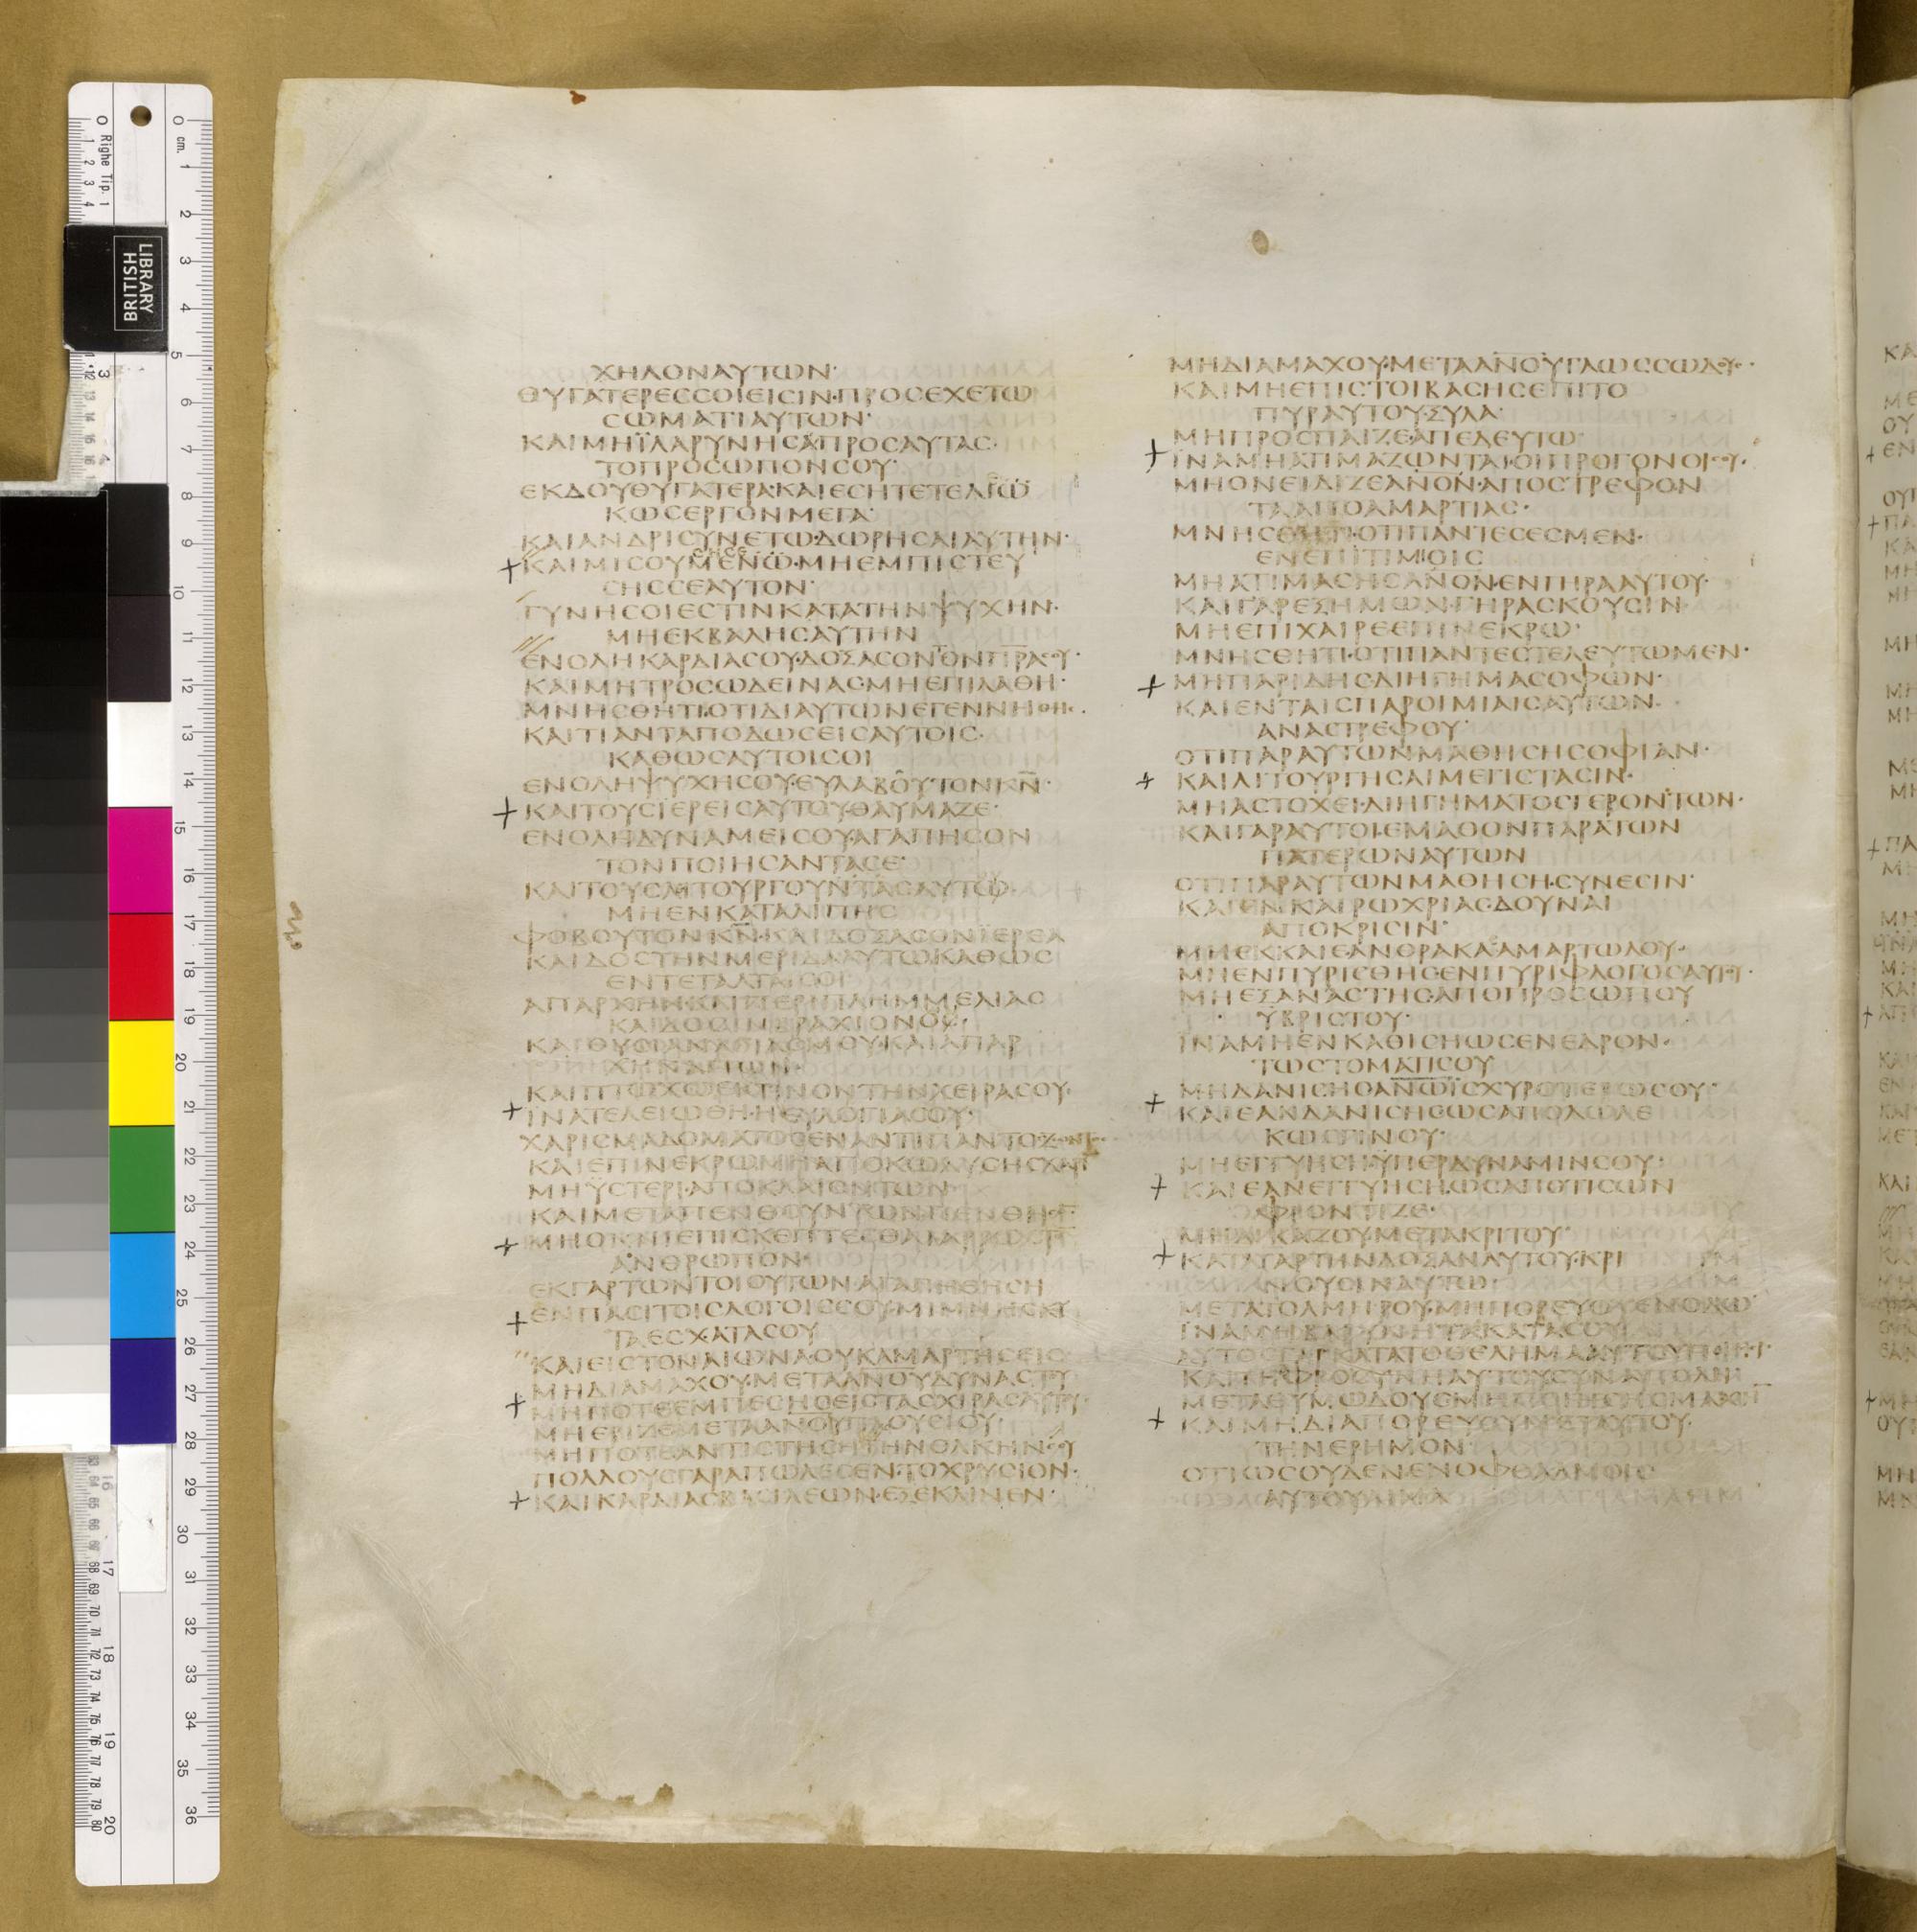 ΧΗΛΟΝΑΥΤΩΝ·
ΘΥΓΑΤΕΡΕϹϹΟΙΕΙϹΙΝ·ΠΡΟϹΕΧΕΤΩ
ϹΩΜΑΤΙΑΥΤΩΝ·
ΚΑΙΜΗΪΛΑΡΥΝΗϹΑΠΡΟϹΑΥΤΑϹ·
ΤΟΠΡΟϹΩΠΟΝϹΟΥ·
ΕΚΔΟΥΘΥΓΑΤΕΡΑ·ΚΑΙΕϹΗΤΕΤΕΛΕ
ΚΩϹΕΡΓΟΝΜΕΓΑ·
ΚΑΙΑΝΔΡΙϹΥΝΕΤΩ·ΔΩΡΗϹΑΙΑΥΤΗΝ·
ΚΑΙΜΙϹΟΥΜΕΝΩ·ΜΗΕΜΠΙϹΤΕΥ
ϹΗϹϹΕΑΥΤΟΝ·
ΓΥΝΗϹΟΙΕϹΤΙΝΚΑΤΑΤΗΝΨΥΧΗΝ·
ΜΗΕΚΒΑΛΗϹΑΥΤΗΝ
ΕΝΟΛΗΚΑΡΔΙΑϹΟΥ·ΔΟΞΑϹΟΝΤΟΝΠΡΑϹΟΥ·
ΚΑΙΜΗΤΡΟϹΩΔΕΙΝΑϹ·ΜΗΕΠΙΛΑΘΗ·
ΜΝΗϹΘΗΤΙ·ΟΤΙΔΙΑΥΤΩΝΕΓΕΝΝΗΘΗϹ·
ΚΑΙΤΙΑΝΤΑΠΟΔΩϹΕΙϹΑΥΤΟΙϹ·
ΚΑΘΩϹΑΥΤΟΙϹΟΙ
ΕΝΟΛΗΨΥΧΗϹΟΥ·ΕΥΛΑΒΟΥΤΟΝΚΝ·
ΚΑΙΤΟΥϹΪΕΡΕΙϹΑΥΤΟΥΘΑΥΜΑΖΕ·
ΕΝΟΛΗΔΥΝΑΜΕΙϹΟΥΑΓΑΠΗϹΟΝ
ΤΟΝΠΟΙΗϹΑΝΤΑϹΕ·
ΚΑΙΤΟΥϹΛΙΤΟΥΡΓΟΥΝΤΑϹΑΥΤΩ·
ΜΗΕΝΚΑΤΑΛΙΠΗϹ
ΦΟΒΟΥΤΟΝΚΝ·ΚΑΙΔΟΞΑϹΟΝΪΕΡΕΑ
ΚΑΙΔΟϹΤΗΝΜΕΡΙΔΑΑΥΤΩΚΑΘΩϹ
ΕΝΤΕΤΑΛΤΑΙϹΟΙ·
ΑΠΑΡΧΗΝ·ΚΑΙΠΕΡΙΠΛΗΜΜΕΛΙΑϹ
ΚΑΙΔΟϹΙΝΒΡΑΧΙΟΝΟϹ·
ΚΑΙΘΥϹΙΑΝΑΓΙΑϹΜΟΥ·ΚΑΙΑΠΑΡ
ΧΗΝΑΓΙΩΝ·
ΚΑΙΠΤΩΧΩΕΚΤΙΝΟΝΤΗΝΧΕΙΡΑϹΟΥ·
ΪΝΑΤΕΛΕΙΩΘΗ·ΗΕΥΛΟΓΙΑϹΟΥ·
ΧΑΡΙϹΜΑΔΟΜΑΤΟϹΕΝΑΝΤΙΠΑΝΤΟϹΖΩΝΤ
ΚΑΙΕΠΙΝΕΚΡΩΜΗΑΠΟΚΩΛΥϹΗϹΧΑΡΙ
ΜΗΫϹΤΕΡΙ·ΑΠΟΚΛΑΙΟΝΤΩΝ
ΚΑΙΜΕΤΑΠΕΝΘΟΥΝΤΩΝΠΕΝΘΗ
ΜΗΟΚΝΙΕΠΙϹΚΕΠΤΕϹΘΑΙΑΡΡΩϹΤ
ΑΝΘΡΩΠΟΝ·
ΕΚΓΑΡΤΩΝΤΟΙΟΥΤΩΝΑΓΑΠΗΘΗϹΗ
ΕΝΠΑϹΙΤΟΙϹΛΟΓΟΙϹϹΟΥΜΙΜΝΗϹΚΥ
ΤΑΕϹΧΑΤΑϹΟΥ
ΚΑΙΕΙϹΤΟΝΑΙΩΝΑ·ΟΥΚΑΜΑΡΤΗϹΕΙϹ
ΜΗΔΙΑΜΑΧΟΥ·ΜΕΤΑΑΝΟΥΔΥΝΑϹΤΥ
ΜΗΠΟΤΕΕΜΠΕϹΗϹΕΙϹΤΑϹΧΙΡΑϹΑΥΤΥ·
ΜΗΕΡΙΖΕΜΕΤΑΑΝΟΥΠΛΟΥϹΙΟΥ·
ΜΗΠΟΤΕΑΝΤΙϹΤΗϹΗΤΗΝΟΛΚΗΝϹΟΥ
ΠΟΛΛΟΥϹΓΑΡΑΠΩΛΕϹΕΝ·ΤΟΧΡΥϹΙΟΝ·
ΚΑΙΚΑΡΔΙΑϹΒΑϹΙΛΕΩΝΕΞΕΚΛΙΝΕΝ·
ΜΗΔΙΑΜΑΧΟΥ·ΜΕΤΑΑΝΟΥΓΛΩϹϹΩΔΟΥ·
ΚΑΙΜΗΕΠΙϹΤΟΙΒΑϹΗϹΕΠΙΤΟ
ΠΥΡΑΥΤΟΥ·ΞΥΛΑ·
ΜΗΠΡΟϹΠΑΙΖΕΑΠΕΔΕΥΤΩ·
ΪΝΑΜΗΑΤΙΜΑΖΩΝΤΑΙ·ΟΙΠΡΟΓΟΝΟΙϹΟΥ·
ΜΗΟΝΕΙΔΙΖΕΑΝΟΝ·ΑΠΟϹΤΡΕΦΟΝ
ΤΑΑΠΟΑΜΑΡΤΙΑϹ·
ΜΝΗϹΘΗΤΙ·ΟΤΙΠΑΝΤΕϹΕϹΜΕΝ·
ΕΝΕΠΙΤΙΜΙΟΙϹ
ΜΗΑΤΙΜΑϹΗϹΑΝΟΝ·ΕΝΓΗΡΑΑΥΤΟΥ·
ΚΑΙΓΑΡΕΞΗΜΩΝ·ΓΗΡΑϹΚΟΥϹΙΝ·
ΜΗΕΠΙΧΑΙΡΕΕΠΙΝΕΚΡΩ·
ΜΝΗϹΘΗΤΙ·ΟΤΙΠΑΝΤΕϹΤΕΛΕΥΤΩΜΕΝ·
ΜΗΠΑΡΙΔΗϹΔΙΗΓΗΜΑϹΟΦΩΝ·
ΚΑΙΕΝΤΑΙϹΠΑΡΟΙΜΙΑΙϹΑΥΤΩΝ·
ΑΝΑϹΤΡΕΦΟΥ·
ΟΤΙΠΑΡΑΥΤΩΝΜΑΘΗϹΗϹΟΦΙΑΝ·
ΚΑΙΛΙΤΟΥΡΓΗϹΑΙΜΕΓΙϹΤΑϹΙΝ·
ΜΗΑϹΤΟΧΕΙΔΙΗΓΗΜΑΤΟϹΓΕΡΟΝΤΩΝ·
ΚΑΙΓΑΡΑΥΤΟΙΕΜΑΘΟΝΠΑΡΑΤΩΝ
ΠΑΤΕΡΩΝΑΥΤΩΝ
ΟΤΙΠΑΡΑΥΤΩΝΜΑΘΗϹΗ·ϹΥΝΕϹΙΝ·
ΚΑΙΕΝΚΑΙΡΩΧΡΙΑϹΔΟΥΝΑΙ
ΑΠΟΚΡΙϹΙΝ·
ΜΗΕΚΚΑΙΕΑΝΘΡΑΚΑϹΑΜΑΡΤΩΛΟΥ·
ΜΗΕΝΠΥΡΙϹΘΗϹΕΝΠΥΡΙΦΛΟΓΟϹΑΥΤΥ·
ΜΗΕΞΑΝΑϹΤΗϹΑΠΟΠΡΟϹΩΠΟΥ
ΥΒΡΙϹΤΟΥ·
ΪΝΑΜΗΕΝΚΑΘΙϹΗΩϹΕΝΕΔΡΟΝ·
ΤΩϹΤΟΜΑΤΙϹΟΥ
ΜΗΔΑΝΙϹΗϹΑΝΩΪϹΧΥΡΟΤΕΡΩϹΟΥ·
ΚΑΙΕΑΝΔΑΝΙϹΗϹΩϹΑΠΟΛΩΛΕ
ΚΩϹΓΙΝΟΥ·
ΜΗΕΓΓΥΗϹΗΫΠΕΡΔΥΝΑΜΙΝϹΟΥ·
ΚΑΙΕΑΝΕΓΓΥΗϹΗ·ΩϹΑΠΟΤΙϹΩΝ
ΦΡΟΝΤΙΖΕ·
ΜΗΔΙΚΑΖΟΥΜΕΤΑΚΡΙΤΟΥ·
ΚΑΤΑΓΑΡΤΗΝΔΟΞΑΝΑΥΤΟΥ·ΚΡΙ
ΝΟΥϹΙΝΑΥΤΩ·
ΜΕΤΑΤΟΛΜΗΡΟΥ·ΜΗΠΟΡΕΥΟΥΕΝΟΔΩ
ΪΝΑΜΗΒΑΡΥΝΗΤΑΚΑΤΑϹΟΥ
ΑΥΤΟϹΓΑΡΚΑΤΑΤΟΘΕΛΗΜΑΑΥΤΟΥΠΟΙΗϹΙ·
ΚΑΙΤΗΑΦΡΟϹΥΝΗΑΥΤΟΥϹΥΝΑΠΟΛΗ
ΜΕΤΑΘΥΜΩΔΟΥϹΜΗΠΟΙΗϹΗϹΜΑΧΗ
ΚΑΙΜΗΔΙΑΠΟΡΕΥΟΥΜΕΤΑΥΤΟΥ·
ΤΗΝΕΡΗΜΟΝ·
ΟΤΙΩϹΟΥΔΕΝΕΝΟΦΘΑΛΜΟΙϹ
ΑΥΤΟΥΑΙΜΑ
BRITISH
LIBRARY